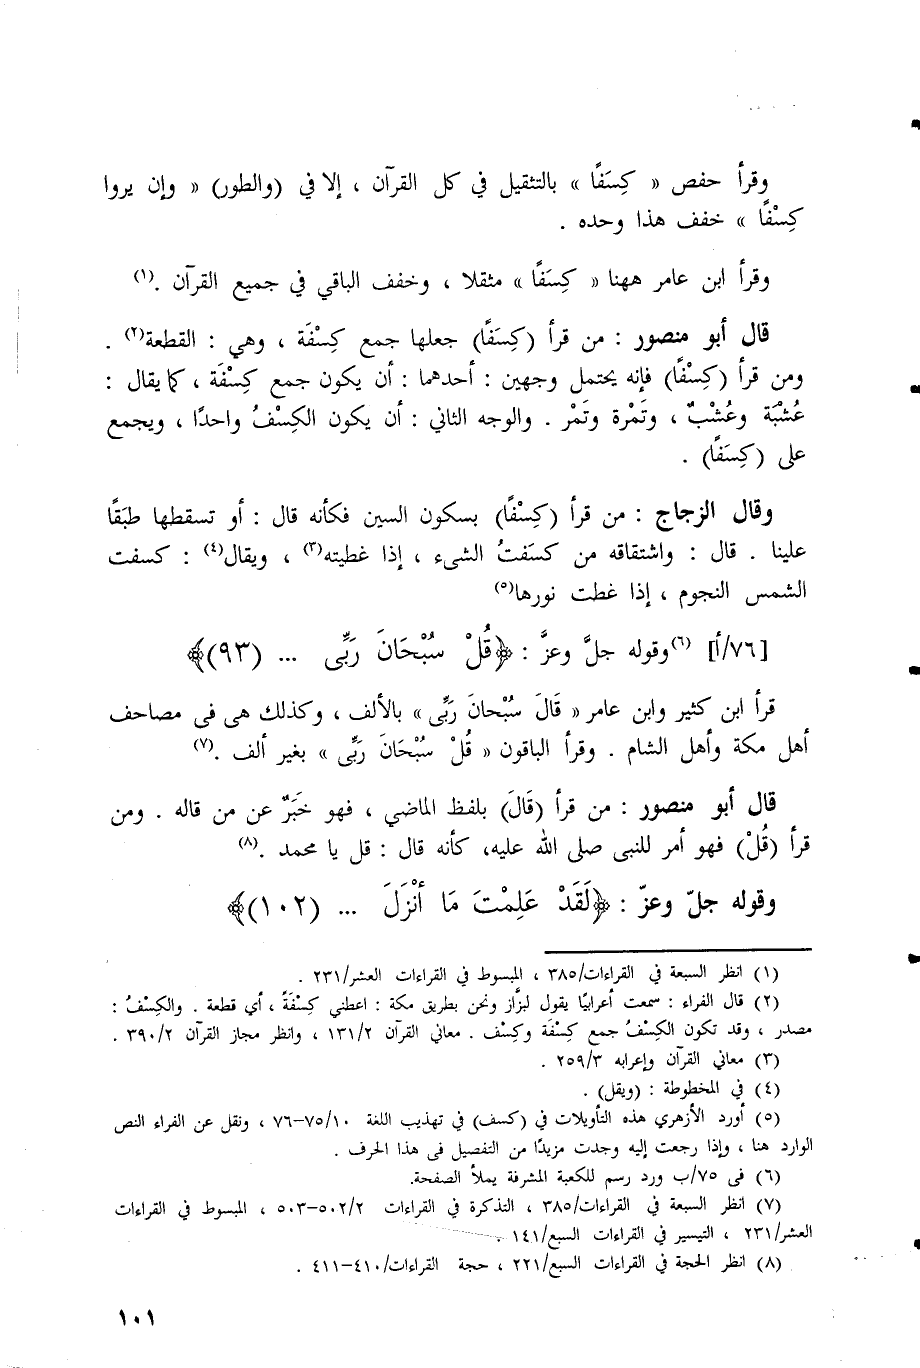 وقرأ حفص « كِسَفًا » بالتثقيل في كل القرآن ، إلا في (والطور) « وإن يروا
كِسْفًا » خفف هذا وحده .
وقرأ ابن عامر ههنا « كِسَفًا » مثقلا ، وخفف الباقي في جميع القرآن .(١)
قال أبو منصور : من قرأ (كِسَفًا) جعلها جمع كِسْفَة ، وهي : القطعة(٢) .
ومن قرأ (كِسْفًا) فإنه يحتمل وجهين : أحدهما : أن يكون جمع كِسْفَة ، كما يقال :
عُشْبَة وعُشْبٌ ، وتَمْرة وتَمْر . والوجه الثاني : أن يكون الكِسْفُ واحدًا ، ويجمع
على (كِسَفًا) .
وقال الزجاج : من قرأ (كِسْفًا) بسكون السين فكأنه قال : أو تسقطها طبَقًا
علينا . قال : واشتقاقه من كسَفتُ الشيء ، إذا غطيته(٣) ، ويقال(٤) : كسفت
الشمس النجوم ، إذا غطت نورها(٥)
[٧٦/أ] (٦)وقوله جلَّ وعزَّ : ﴿قُلْ سُبْحَانَ رَبِّى ... (٩٣)﴾
قرأ ابن كثير وابن عامر « قَالَ سُبْحانَ رَبِّى » بالألف ، وكذلك هى فى مصاحف
أهل مكة وأهل الشام . وقرأ الباقون « قُلْ سُبْحَانَ رَبِّى » بغير ألف .(٧)
قال أبو منصور : من قرأ (قَالَ) بلفظ الماضي ، فهو خَبَرٌ عن من قاله . ومن
قرأ (قُلْ) فهو أمر للنبى صلى الله عليه، كأنه قال : قل يا محمد .(٨)
وقوله جلّ وعزّ : ﴿لَقَدْ عَلِمْتَ مَا أَنْزَلَ ... (١٠٢)﴾
(١) انظر السبعة في القراءات/٣٨٥ ، المبسوط في القراءات العشر/٢٣١ .
(٢) قال الفراء : سمعت أعرابيًا يقول لبزَّاز ونحن بطريق مكة : اعطني كِسْفَةً ، أي قطعة . والكِسْفُ :
مصدر ، وقد تكون الكِسْفُ جمع كِسْفَة وكِسْف . معاني القرآن ١٣١/٢ ، وانظر مجاز القرآن ٣٩٠/٢ .
(٣) معاني القرآن وإعرابه ٢٥٩/٣ .
(٤) في المخطوطة : (ويقل) .
(٥) أورد الأزهري هذه التأويلات في (كسف) في تهذيب اللغة ٧٥/١٠-٧٦ ، ونقل عن الفراء النص
الوارد هنا ، وإذا رجعت إليه وجدت مزيدًا من التفصيل فى هذا الحرف .
(٦) فى ٧٥/ب ورد رسم للكعبة المشرفة يملأ الصفحة.
(٧) انظر السبعة في القراءات/٣٨٥ ، التذكرة في القراءات ٥٠٢/٢-٥٠٣ ، المبسوط في القراءات
العشر/٢٣١ ، التيسير في القراءات السبع/١٤١ .
(٨) انظر الحجة في القراءات السبع/٢٢١ ، حجة القراءات/٤١٠-٤١١ .
١٠١